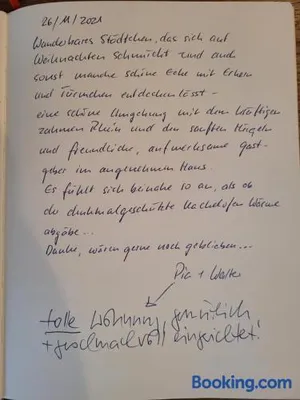 26/11/2021
Wunderbares Städtchen, das sich auf
Weihnachten schmückt und auch
sonst manche schöne Ecke mit Erkern
und Türmchen entdecken lässt -
eine schöne Umgebung mit dem kräftigen
zahmen Rhein und den sanften Hügeln
und freundliche, aufmerksame Gast-
geber im angenehmen Haus.
Es fühlt sich beinahe so an, als ob
der denkmalgeschützte Kachelofen Wärme
abgäbe...
Danke, wären gerne noch geblieben...
Pia + Walter
tolle Wohnung, gemütlich
+ geschmackvoll eingerichtet!
Booking.com